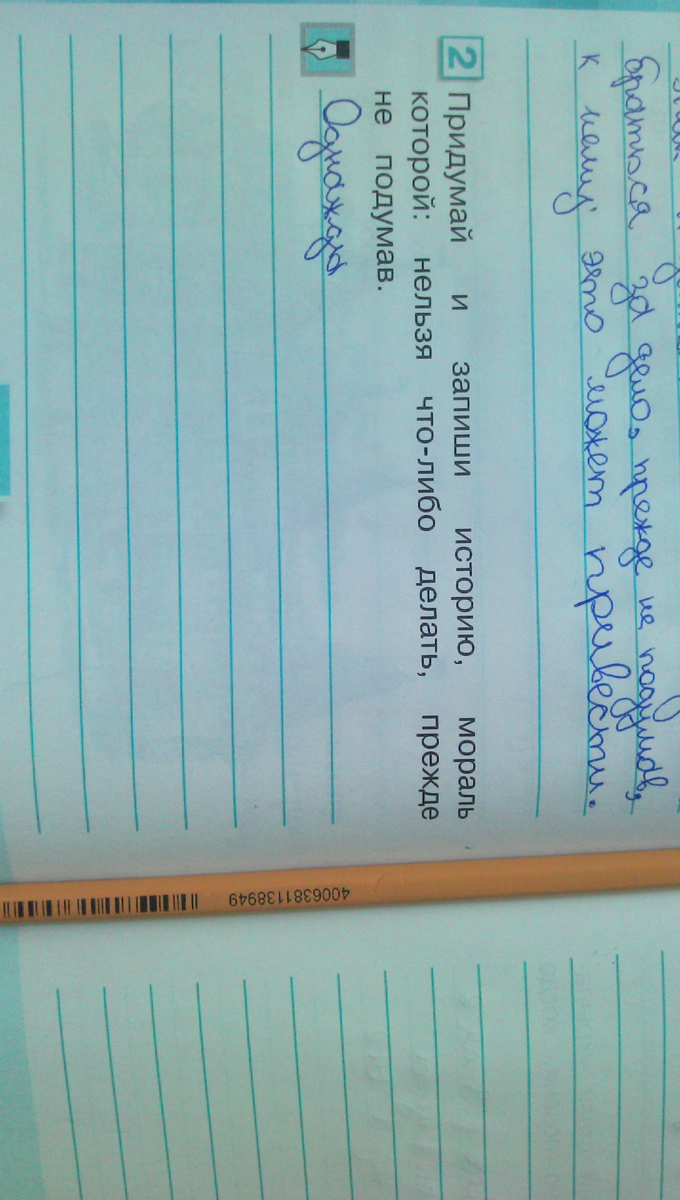 браться за дело, прежде не подумав,
к чему это может привести.
2 Придумай и запиши историю, мораль
которой: нельзя что-либо делать, прежде
не подумав.
Однажды
4006381138949